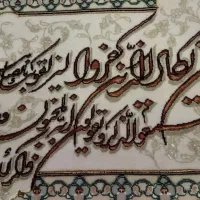 يكاد الذين كفروا ليزلقونك
سمعوا الذكر ويقولون إنه لمجنون و